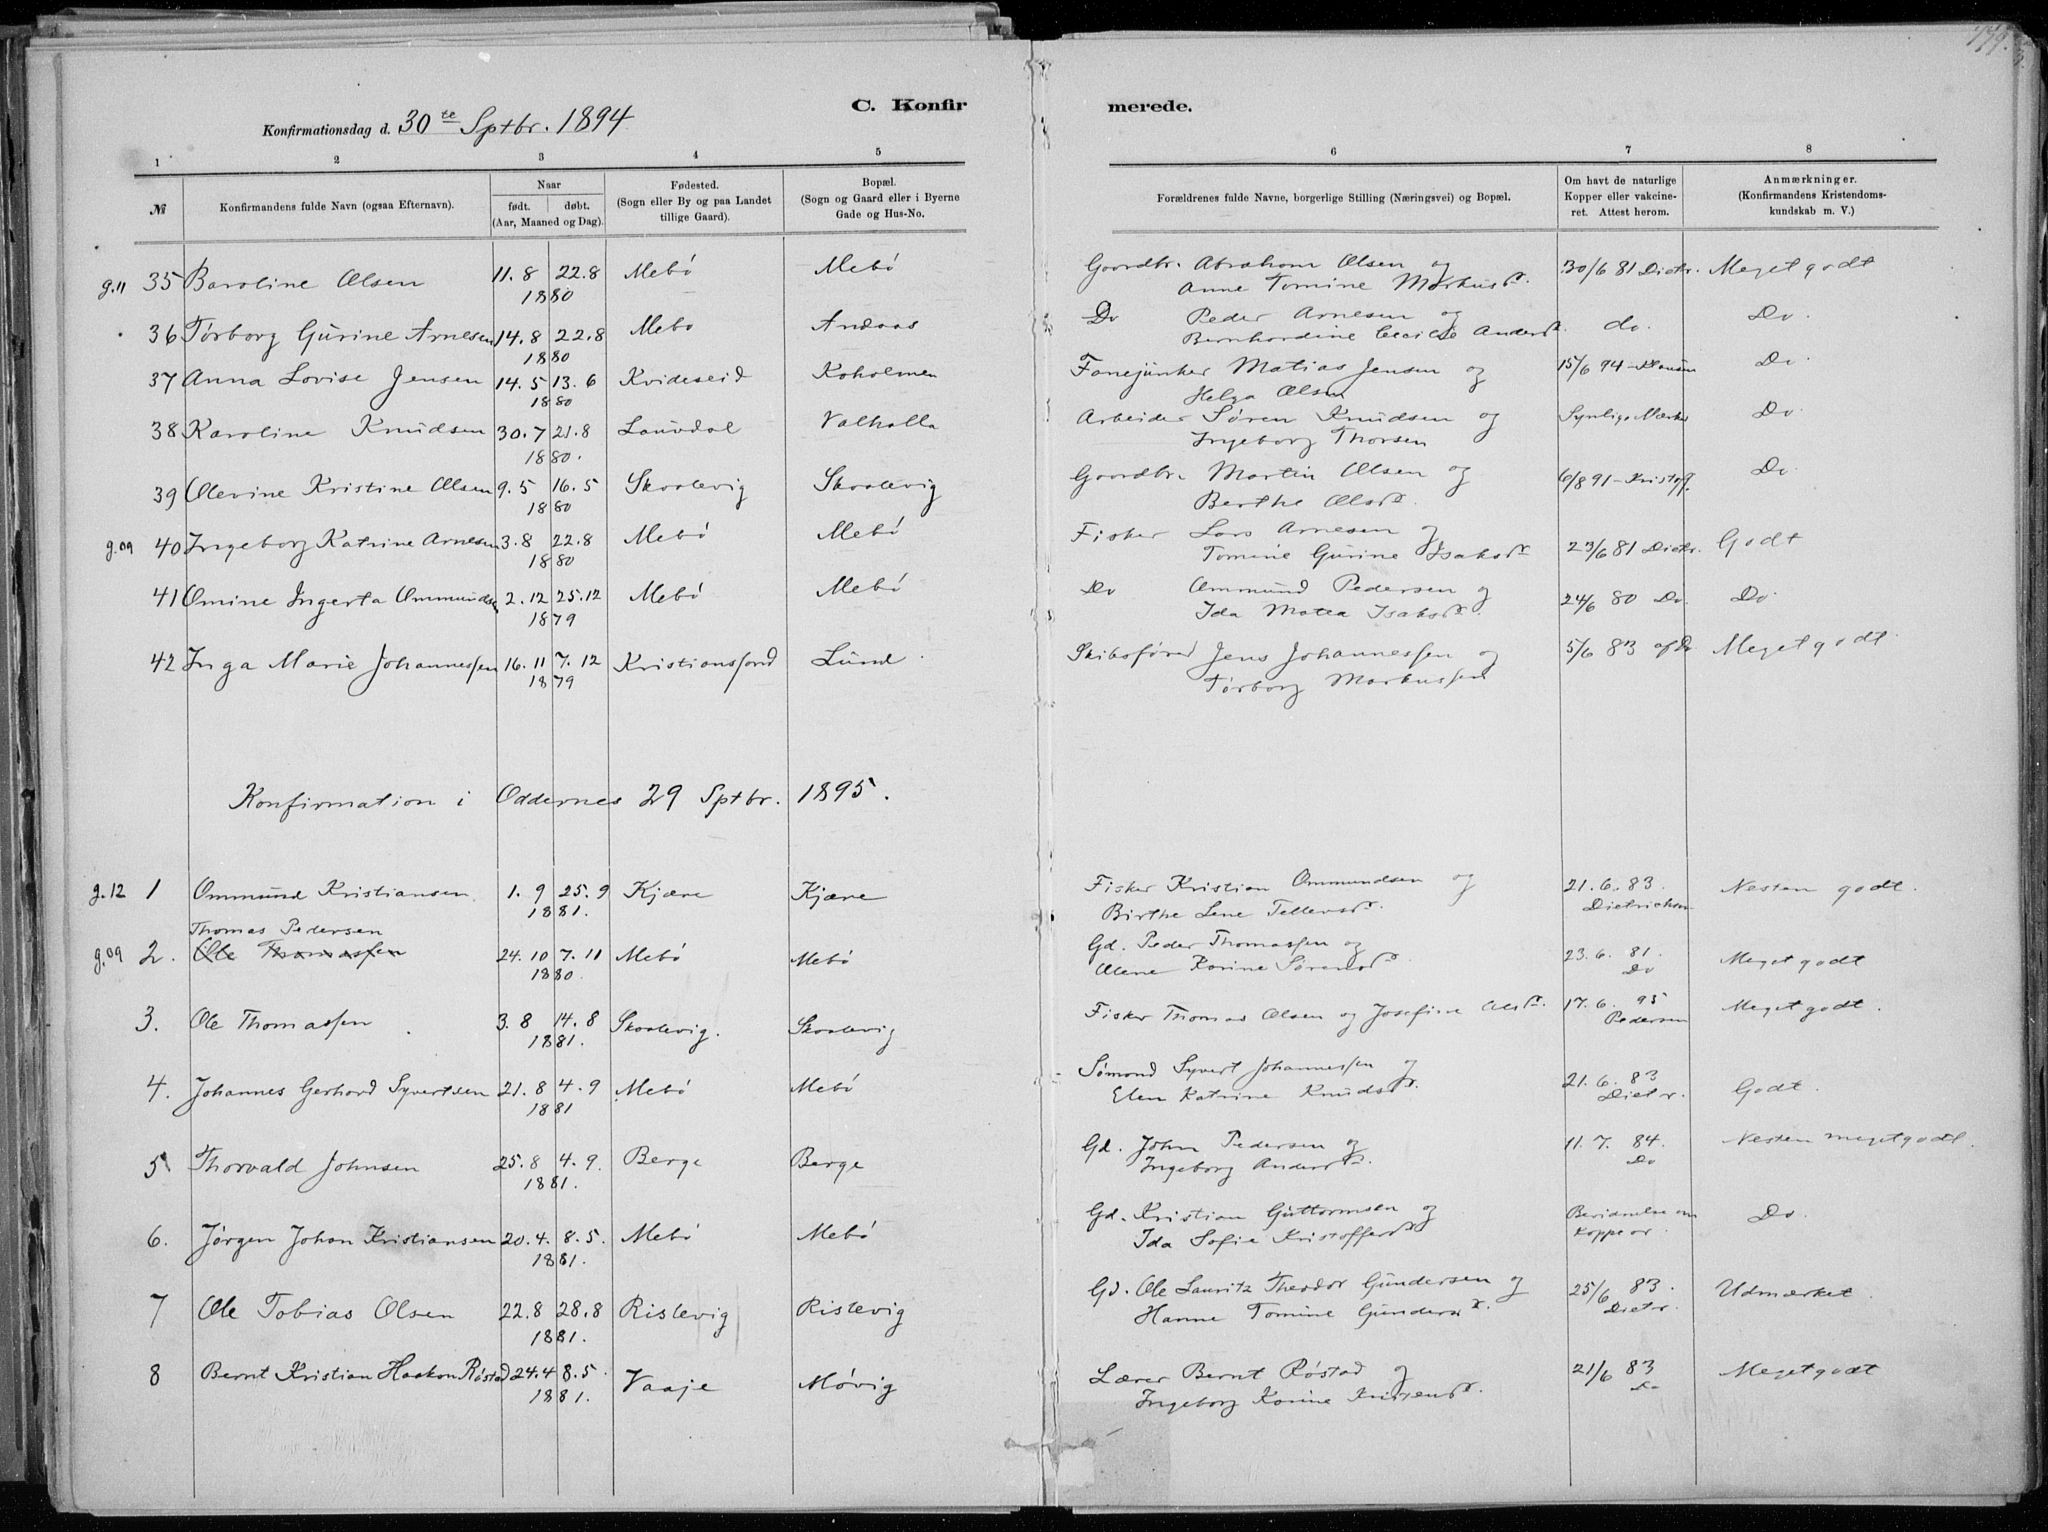 179.
C. Konfirmerede.
Konfirmationsdag d. 30te Sptbr. 1894
1 2 3 4 5 6 7 8
№ Konfirmandens fulde Navn (ogsaa Efternavn). Naar født. døbt. (Aar, Maaned og Dag). Fødested. (Sogn eller By og paa Landet tillige Gaard). Bopæl. (Sogn og Gaard eller i Byerne Gade og Hus-No. Forældrenes fulde Navne, borgerlige Stilling (Næringsvei) og Bopæl. Om havt de naturlige Kopper eller vakcineret. Attest herom. Anmærkninger. (Konfirmandens Kristendomskundskab m. V.)
g.11 35 Baroline Olsen 11.8 22.8 Mebø Mebø Gaardbr. Abraham Olsen og 30/6 81 Dietr. Meget godt
1880 Anne Tomine Markusdr.
36 Tørborg Gurine Arnesen 14.8 22.8 Mebø Andaas Do Peder Arnesen og do. Do.
1880 Bernhardine Cecilie Andersdr.
37 Anna Lovise Jensen 14.5 13.6 Kvideseid Koholmen Fanejunker Matias Jensen og 15/6 94 Do
1880 Helga Olsen
38 Karoline Knudsen 30.7 21.8 Lauvdal Valhalla Arbeider Søren Knudsen og Synlige Mærker Do.
1880. Ingeborg Thorsen
39 Olevine Kristine Olsen 9.5 16.5 Skaalevig Skaalevig Gaardbr. Martin Olsen og 6/8 91 - Kristoff. Do.
1880 Berthe Olsdr.
g.09 40 Ingeborg Katrine Arnesen 3.8 22.8 Mebø Mebø Fisker Lars Arnesen og 23/6 81 Dietr. Godt
1880 Tomine Gurine Isaksdr.
41 Omine Ingerta Ommundsen 2.12 25.12 Mebø Mebø Do Ommund Pedersen og 24/6 80 Do. Do.
1879 Ida Matea Isaksdr.
42 Inga Marie Johannessen 16.11 7.12 Kristianssand Lund Skibsfører Jens Johannessen og 5/6 83 af Do Meget godt.
1879 Tørborg Markussen
Konfirmation i Oddernes 29 Sptbr. 1895.
g.12 1 Ommund Kristiansen 1.9 25.9 Kjære Kjære Fisker Kristian Ommundsen og 21.6.83. Nesten godt.
1881. Birthe Lene Tellefsdr. Dietrichsen
Thomas Pedersen
g.09 2. Ole Thomassen 24.10 7.11 Mebø Mebø Gd. Peder Thomassen og 23.6.81. Meget godt
1880. Olene Karine Sørensdr. Do
3. Ole Thomassen 3.8 14.8 Skaalevig. Skaalevig Fisker Thomas Olsen og Josefine Olsdr. 17.6.95 Meget godt.
1881. Pedersen
4. Johannes Gerhard Syvertsen 21.8 4.9 Mebø Mebø Sømand Syvert Johannessen og 21.6.83 Godt.
1881 Elen Katrine Knudsdr. Dietr.
5 Thorvald Johnsen 25.8 4.9. Berge Berge Gd. John Pedersen og 11.7.84. Nesten meget godt.
1881. Ingeborg Andersdr. Do
6. Jørgen Johan Kristiansen 20.4. 8.5. Mebø Mebø Gd. Kristian Guttormsen og Do.
1881. Ida Sofie Kristoffersdr
7 Ole Tobias Olsen 22.8 28.8 Rislevig Rislevig Gd. Ole Lauritz Theodor Gundersen og 25/6 83. Udmærket.
1881. Hanne Tomine Gundersdr. Dietr.
8 Bernt Kristian Haakon Røstad 24.4 8.5. Vaaje Møvig Lærer Bernt Røstad og 21/6 83 Meget godt
1881. Ingeborg Karine Do